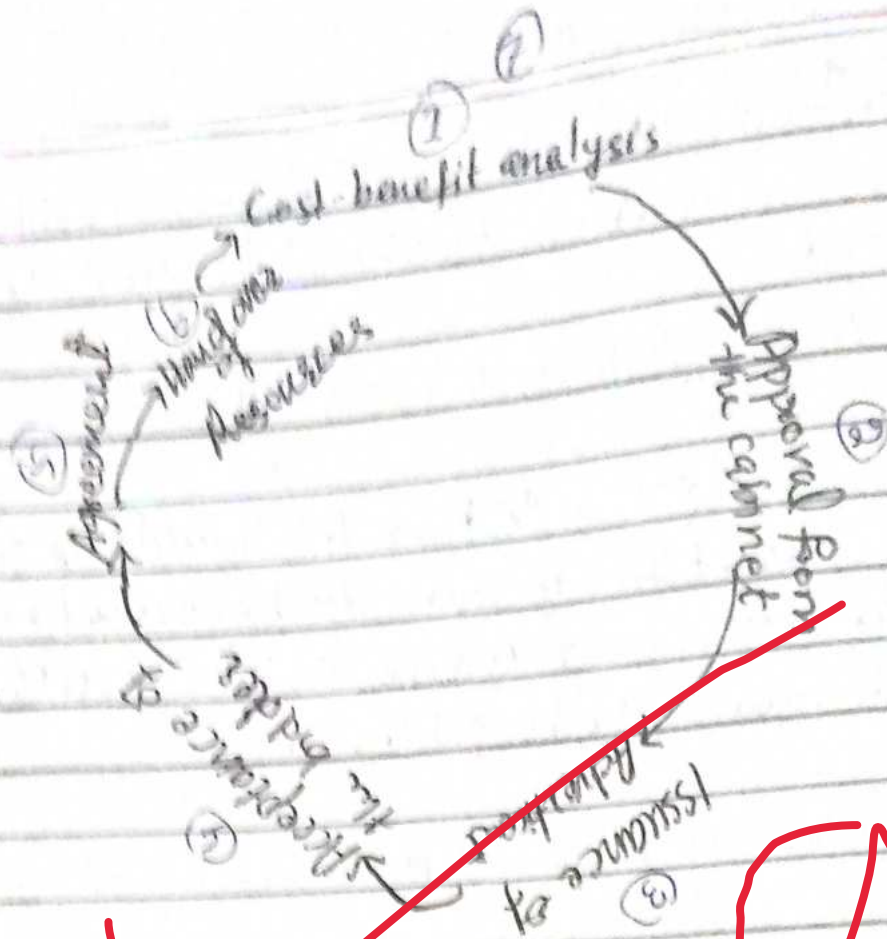 ①
Cost-benefit analysis
②
Approval from
the cabinet
③
Issuance of
④
Acceptance of
the bidder
⑤
Agreement
⑥
of
Resources